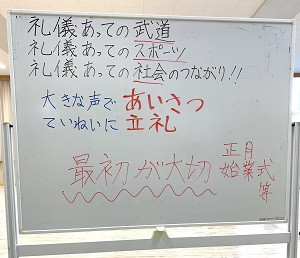 礼儀あっての武道
礼儀あってのスポーツ
礼儀あっての社会のつながり!!
大きな声であいさつ
ていねいに立礼
最初が大切
正月
始業式
等